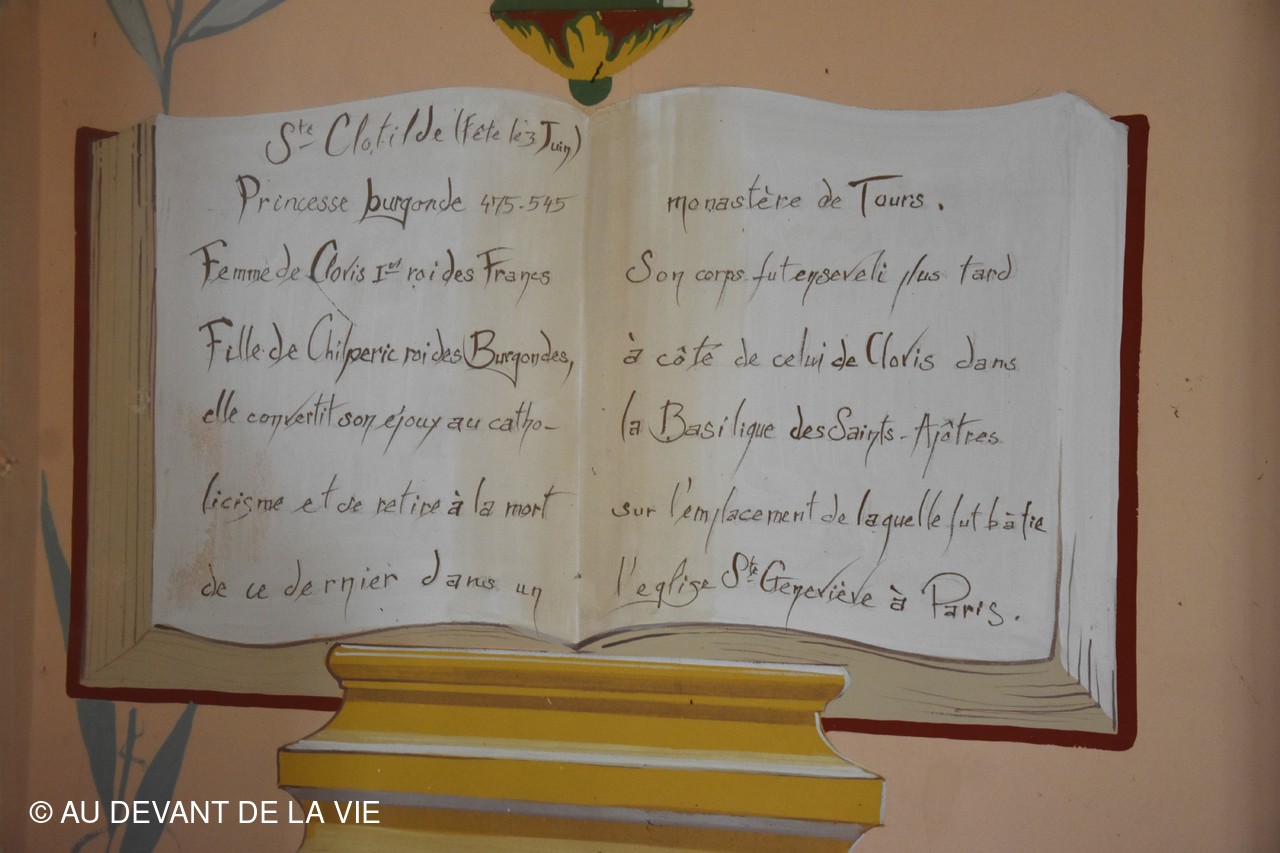 Ste Clotilde (Fête le 3 Juin)
Princesse burgonde 475-545
Femme de Clovis Ier roi des Francs
Fille de Chilperic roi des Burgondes,
elle convertit son époux au catho-
licisme et se retire à la mort
de ce dernier dans un
monastère de Tours.
Son corps fut enseveli plus tard
à côté de celui de Clovis dans
la Basilique des Saints-Apôtres
sur l'emplacement de laquelle fut bâtie
l'eglise Ste Geneviève à Paris.
© AU DEVANT DE LA VIE